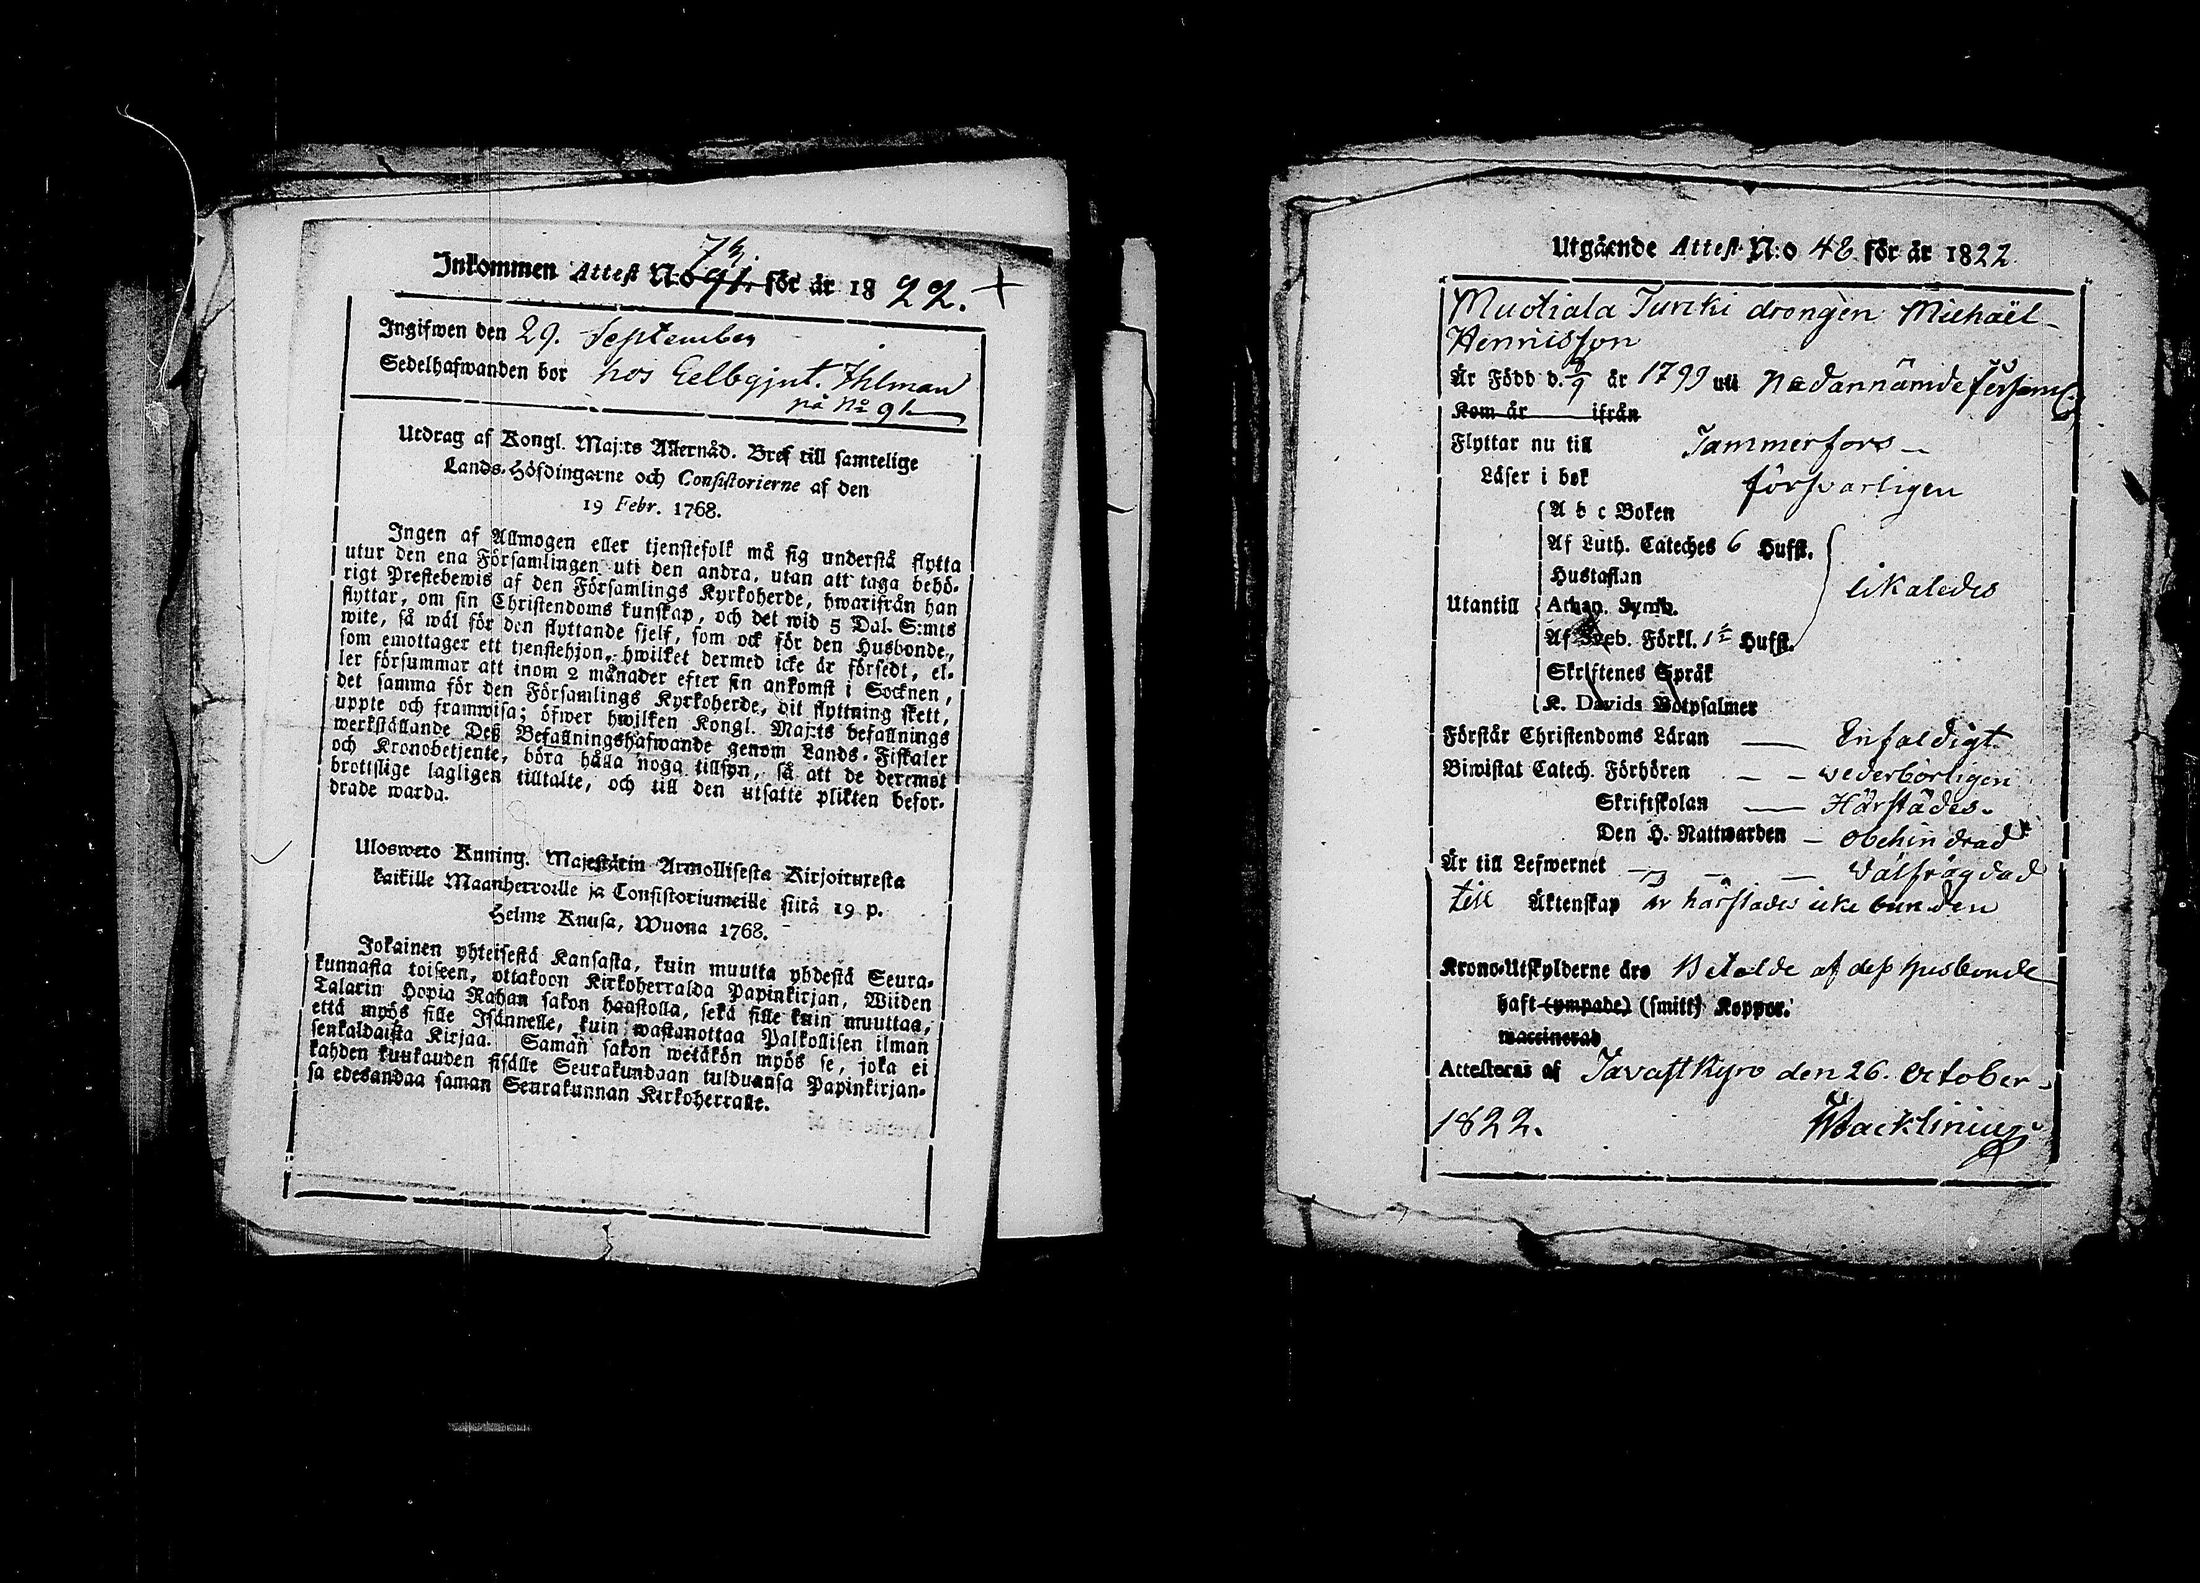 73.
Inkommen Attest N:o 91. för år 1822.
Ingifwen den 29. September
Sedelhafwanden bor hos Gelbgjut. Ihlman
på No 91.
Utdrag af Kongl. Maj:ts Allernåd. Bref till samtelige
Lands-Höfdingarne och Consistorierne af den
19 Febr. 1768.
Ingen af Allmogen eller tjenstefolk må sig understå flytta
utur den ena Församlingen uti den andra, utan att taga behö-
rigt Prestebewis af den Församlings Kyrkoherde, hwarifrån han
flyttar, om sin Christendoms kunskap, och det wid 5 Dal. S:mts
wite, så wäl för den flyttande sjelf, som ock för den Husbonde,
som emottager ett tjenstehjon, hwilket dermed icke är försedt, el-
ler försummar att inom 2 månader efter sin ankomst i Socknen,
det samma för den Församlings Kyrkoherde, dit flyttning skett,
uppte och framwisa; öfwer hwilken Kongl. Maj:ts befallnings
werkställande Deß Befallningshafwande genom Lands-Fiskaler
och Kronobetjente, böra hålla noga tillsyn, så att de deremot
brottslige lagligen tilltalte, och till den utsatte plikten befor-
drade warda.
Uloswето Kuning. Majestätin Armollisesta Kirjoituxesta
kaikille Maanherroille ja Consistoriumeille siitä 19 p.
Helme Kuusa, Wuona 1768.
Jokainen yhteisestä Kansasta, kuin muutta yhdestä Seura-
kunnasta toiseen, ottakoon Kirkoherralda Papinkirjan, Wiiden
Talarin Hopia Rahan sakon haastolla, sekä sille kuin muuttaa,
että myös sille Isännelle, kuin wastanottaa Palkollisen ilman
senkaldaista Kirjaa. Saman sakon wetäkön myös se, joka ei
kahden kuukauden sisälle Seurakundaan tulduansa Papinkirjan-
sa edesandaa saman Seurakunnan Kirkoherralle.
Utgående Attest N:o 48 för år 1822
Muotiala Turcki drängen Michaël
Henricsson
Är Född d. 8/9 år 1799 uti Nedannämde Församl.
Kom år ifrån
Flyttar nu till Tammerfors
Läser i bok försvarligen
A b c Boken
Af Luth. Cateches 6 Hufst.
Hustaflan
Utantill Athan. Symb. likaledes
Af Sveb. Förkl. 1:e Hufst.
Skriftenes Språk
K. Davids Botpsalmer
Förstår Christendoms Läran Enfaldigt
Biwistat Catech. Förhören vederbörligen
Skriftskolan Härstädes
Den H. Nattwarden obehindrad
Är till Lefwernet Välfrägdad
till Äktenskap är härstädes icke bunden
Krono-Utskylderne äro Betalde af dess husbonde
haft (ympade) (smitt) Koppor.
waccinerad
Attesteras af TavastKyro den 26. October
1822. Wacklinius